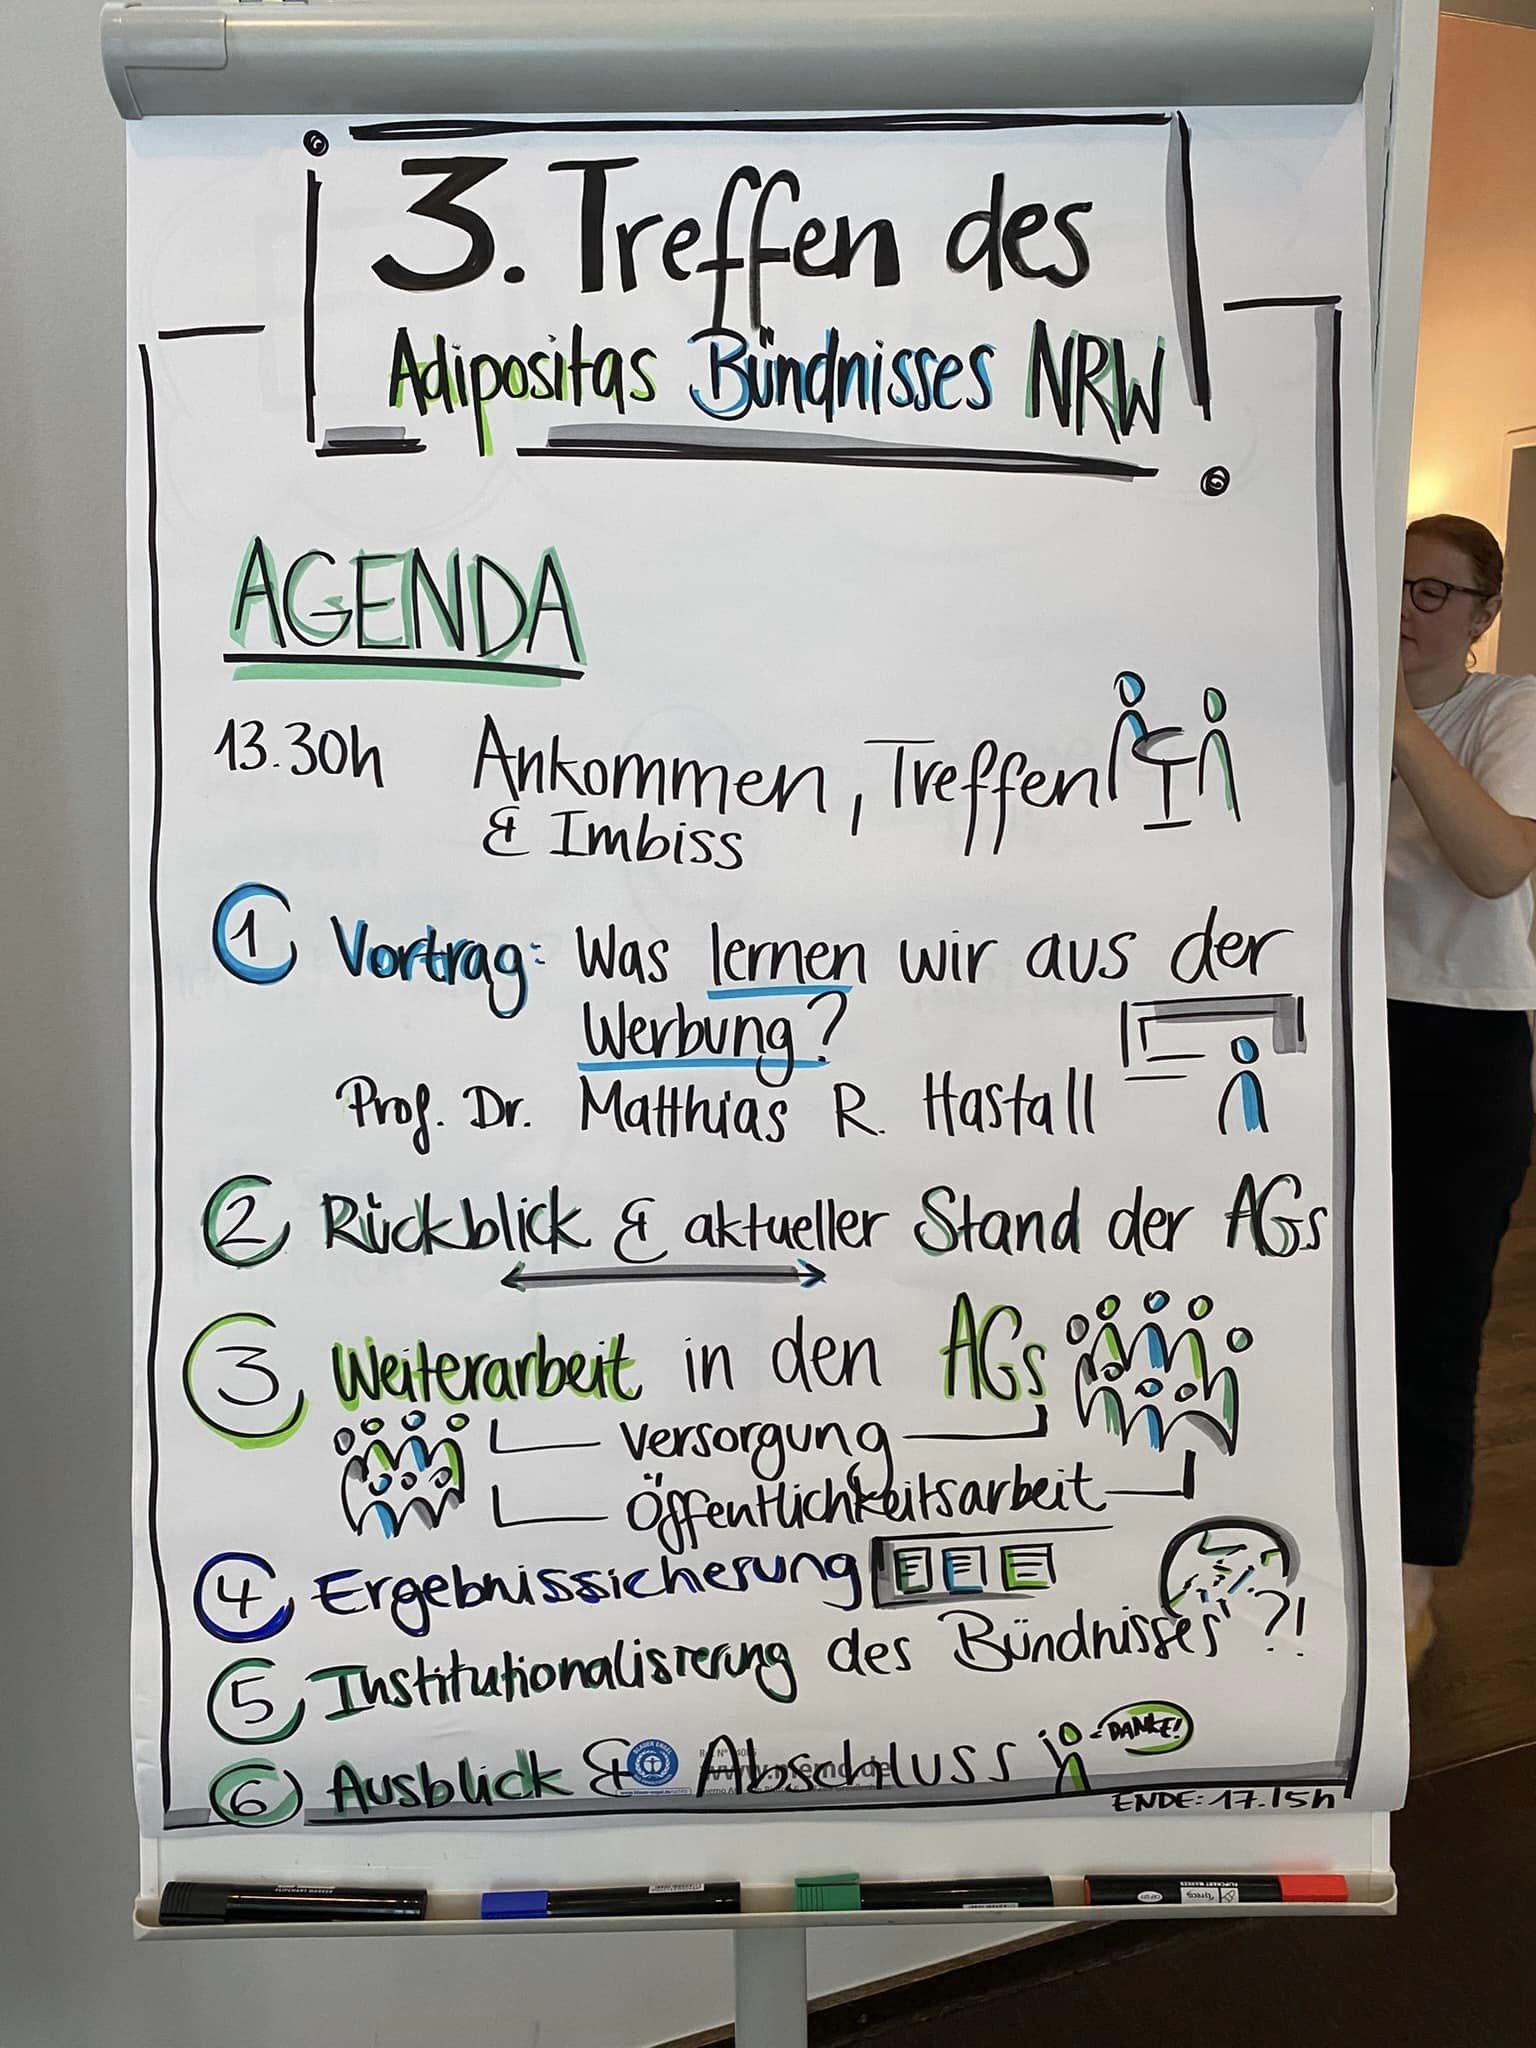 3. Treffen des
Adipositas Bündnisses NRW
AGENDA
13.30h Ankommen, Treffen
& Imbiss
1 Vortrag: Was lernen wir aus der
Werbung?
Prof. Dr. Matthias R. Hastall
2 Rückblick & aktueller Stand der AGs
3 Weiterarbeit in den AGs
Versorgung
Öffentlichkeitsarbeit
4 Ergebnissicherung
5 Institutionalisierung des Bündnisses ?!
6 Ausblick & Abschluss DANKE!
www.memo.de
ENDE: 17.15h